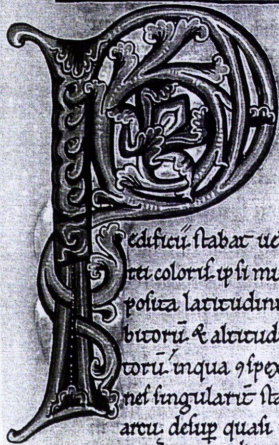 P
edificiū stabat ue
rei coloris ipsi mu
posita latitudinis
bitorū & altitud
torū in qua ꝯspex
nes singularit sta
arcu desup quasi